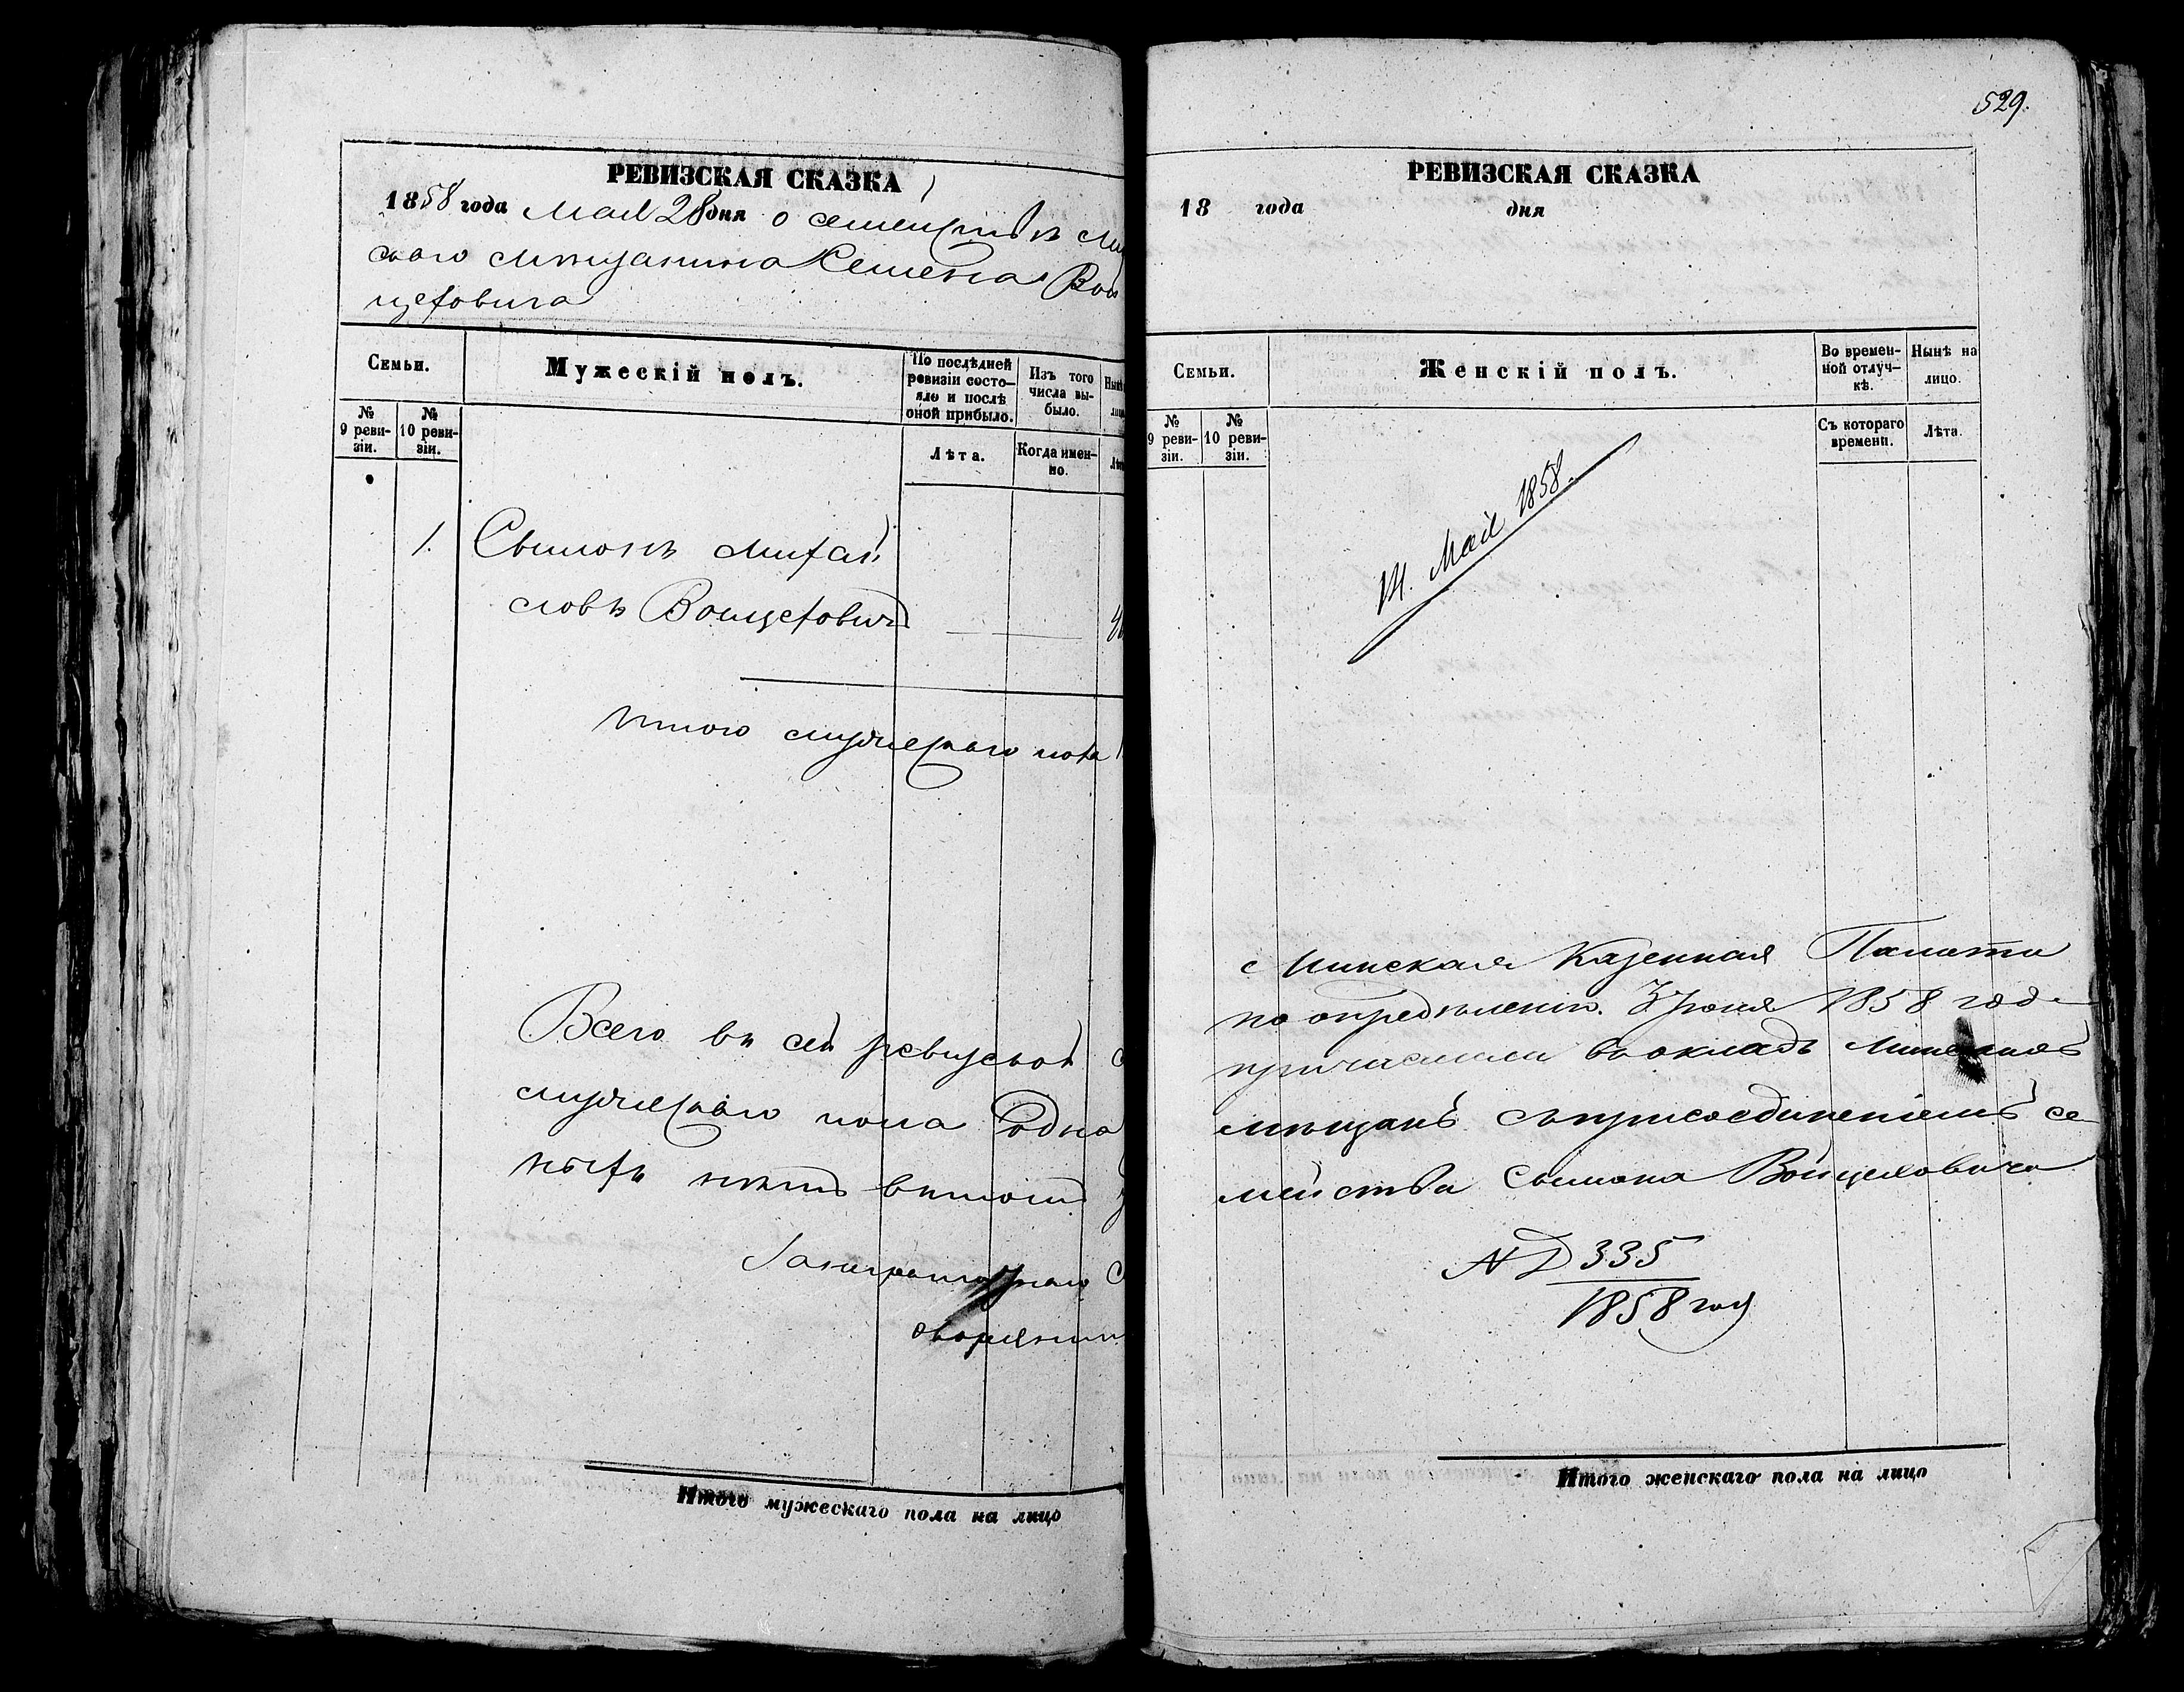 РЕВИЗСКАЯ СКАЗКА
1858 года Мая 28 дня о семействѣ Ми
скаго мѣщанина Семена Вой
цеховича
Семьи.
Мужескій полъ.
По послѣдней ревизіи состо-
яло и послѣ оной прибыло.
Изъ того числа вы-
было.
Нынѣ
лиц
№ 9 реви-
зіи.
№ 10 реви-
зіи.
Лѣта.
Когда имен-
но.
Лѣт
1. Сымонъ Михай
ловъ Войцеховичъ
Итого мужескаго пола 1
Всего въ сей ревизской с
мужескаго пола одна
ныхъ нѣтъ въ томъ
дворянин
Итого мужескаго пола на лицо
529.
РЕВИЗСКАЯ СКАЗКА
18 года дня
Семьи.
Женскій полъ.
Во времен-
ной отлуч-
кѣ.
Нынѣ на
лицо.
№ 9 реви-
зіи.
№ 10 реви-
зіи.
Съ котораго
времени.
Лѣта.
Мая 1858.
Минская Казенная Палата
по опредѣленію 3 Іюня 1858 года
причислила въ окладъ Минскихъ
мѣщанъ съ присоединеніемъ се-
мейства Сымона Войцеховича
№ Д 335
1858 года
Итого женскаго пола на лицо